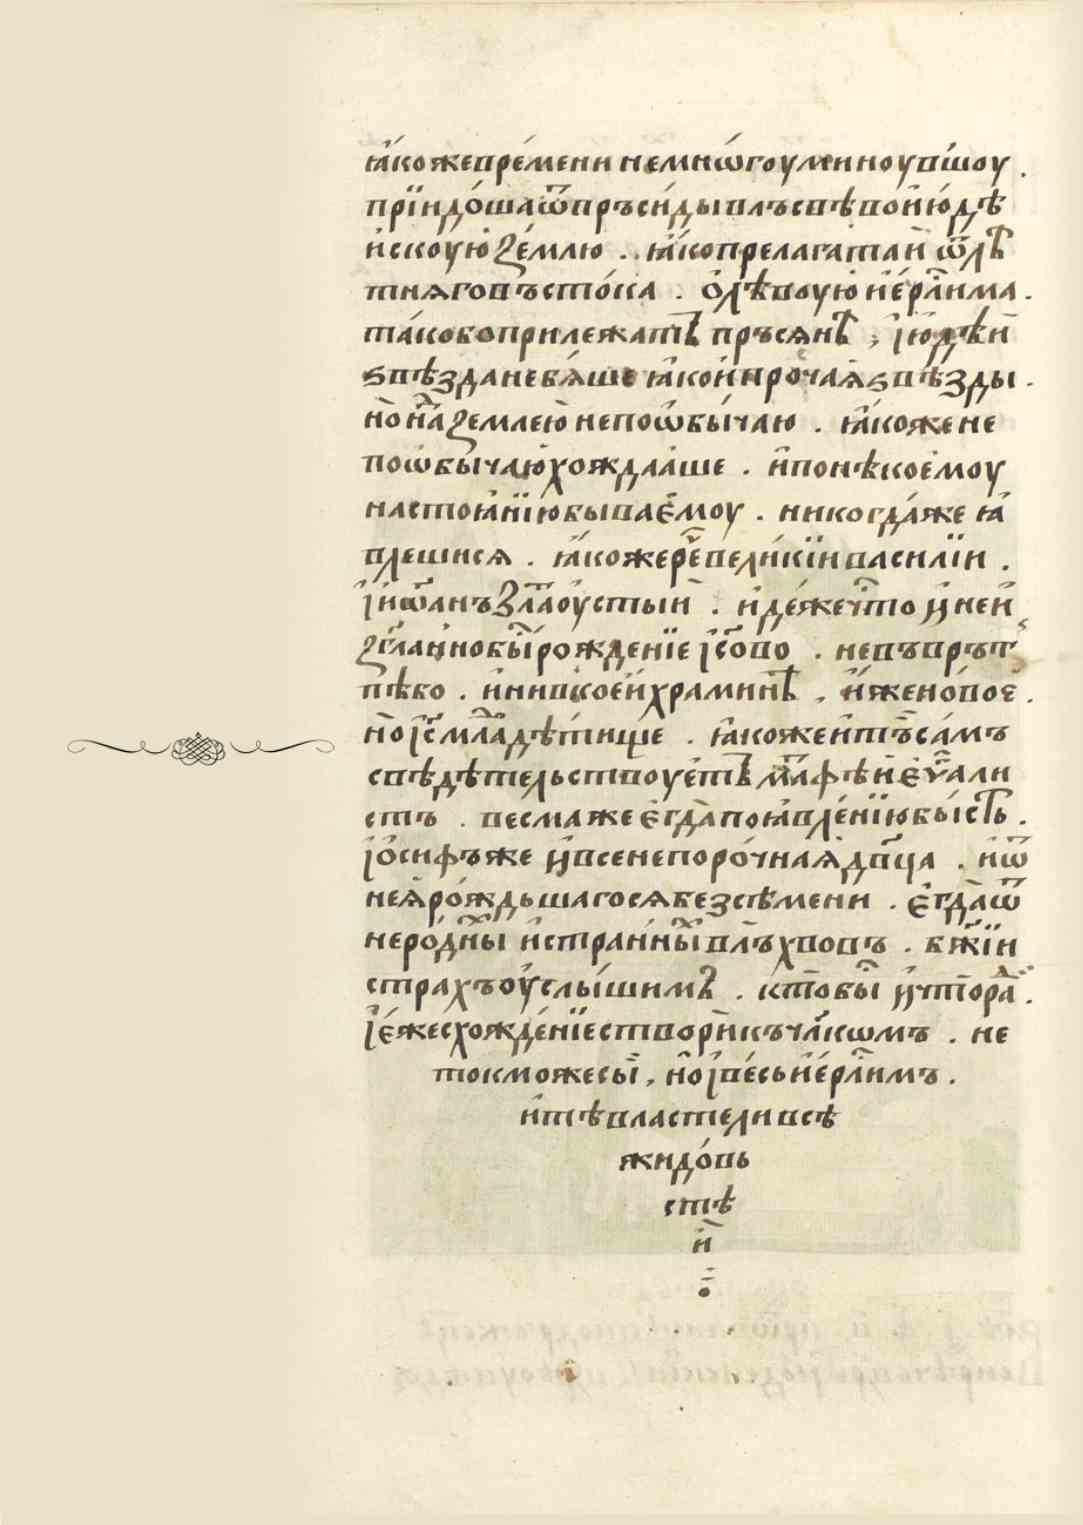 ꙗ҆́коже вре́мени не мнѡ́гоу минꙋ́вшоу .
прїидо́ша ѿ пръси́ды влъсвѣ во и҆ю҆дѣ
и҆скоую҆ зе́млю . ꙗ҆́ко прелагатаи ѿ лѣ
тнѧго въсто́ка . о҆лѣвоую и҆е҆рⷭ҇лима .
та́ко бо прилежатъ пръсѧнѣ , і҆ю҆дѣи
ѕвѣзда не бѧ́ше ꙗ҆́ко и҆ про́чаѧ ѕвѣзды .
но на́ землею не по ѡ҆бы́чаю . ꙗ҆́коже не
по ѡ҆бы́чаю хождааше . и҆ по нѣкое́моу
настоꙗ́нїю быва́е҆моу . никогда́же ꙗ҆
влешисѧ . ꙗ҆́коже речѐ вели́кїи васи́лїи .
і҆ и҆ѡ҆́анъ злⷣаоустыи . и҆де́же что̀ и҆ ней
зг҃лаи но бы̀ рожденїе і҆с҃ово . не въ врът
пѣ бо . и҆ ни в кое́и храминѣ , и҆́же но́вое .
но і҆с҃ млⷣа дѣ́тище . ꙗ҆́коже и҆ тъ са́мъ
свѣдѣтельствоуетъ матфѣи е҆ѵⷢ҇али
стъ . весма же е҆гда̀ по ꙗ҆вле́нїю бы́сть .
і҆о́сифъ же и҆ всенепоро́чнаѧ дв҃ца . и҆ ѿ
неѧ ро́ждьшагосѧ без сѣмени . е҆гда̀ ѿ
неро́дны и҆ стра́нны влъхвовъ . бж҃їи
страхъ оу҆слы́шимъ . кто̀ бы̀ и҆ что̀ ра .
і҆е҆́же схожде́нїе створи къ чл҃кѡмъ . не
токмо же сы̀ , но і҆ ве́сь и҆е҆рⷭ҇лимъ .
и҆ тѣ властели всѣ
жидо́вь
стѣ
и҆